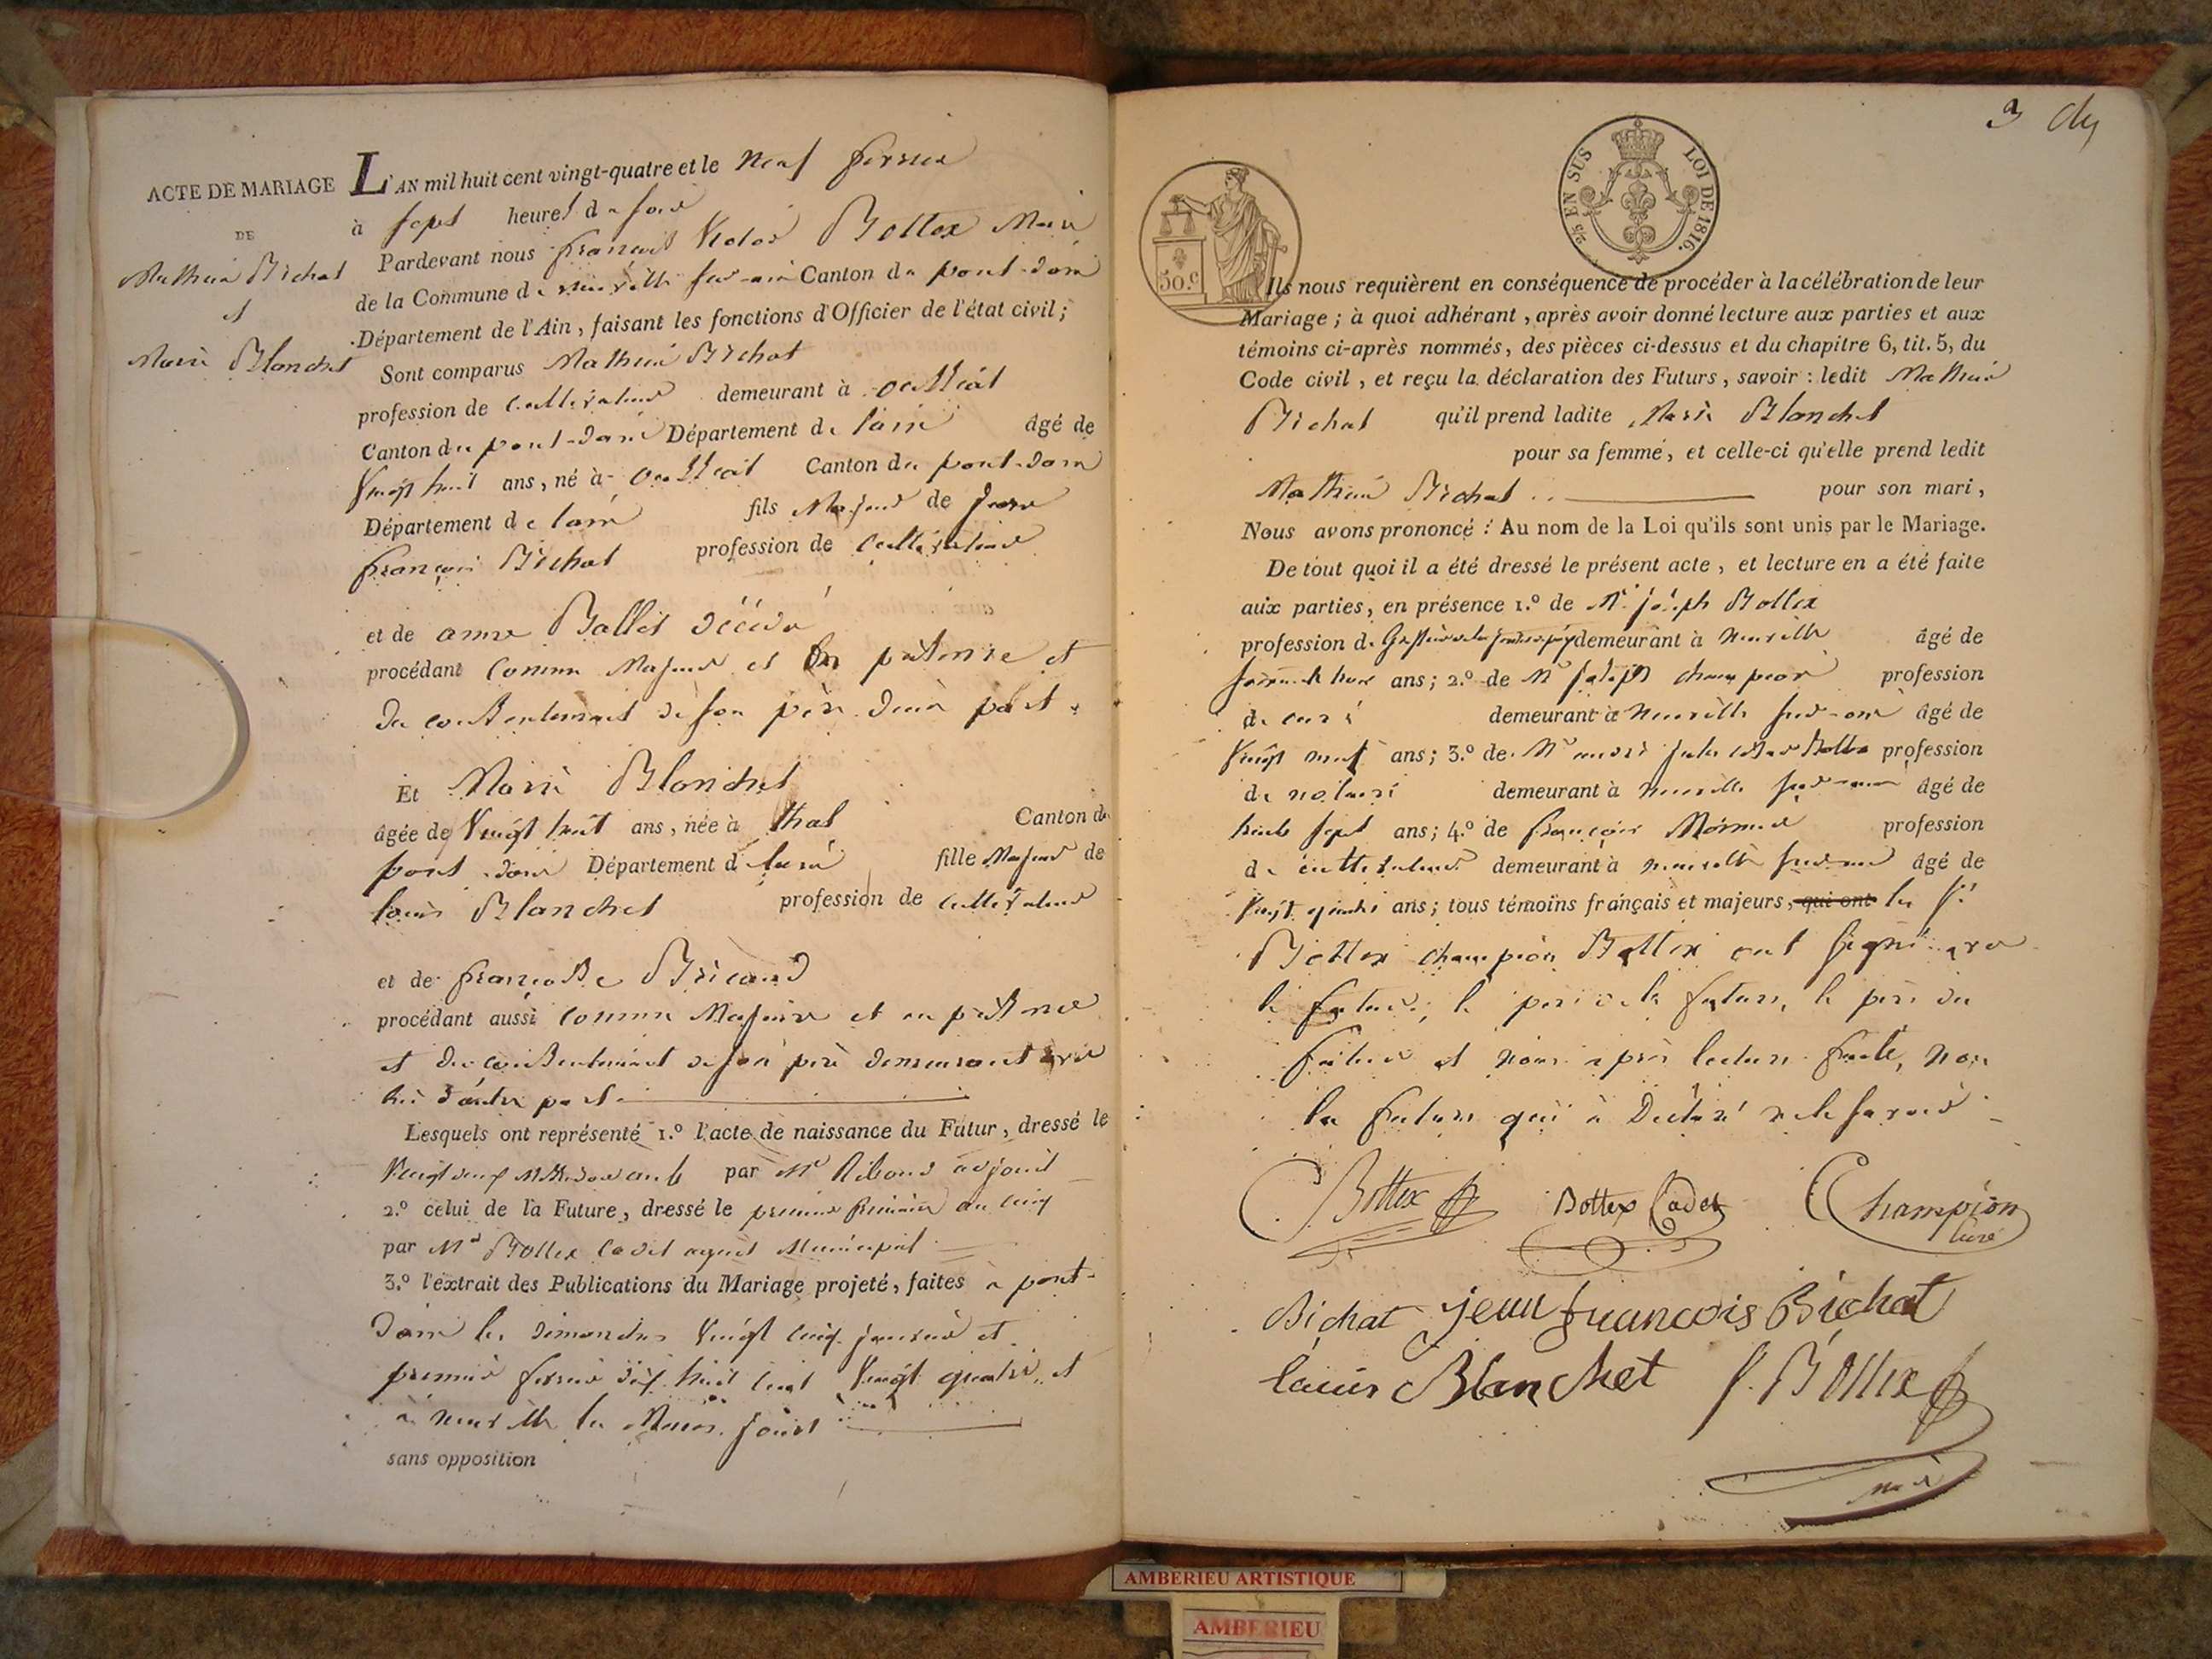 ACTE DE MARIAGE
DE
Mathieu Bichat
et
Marie Blanchet
L'AN mil huit cent vingt-quatre et le neuf fevrier
à sept heures du soir
Pardevant nous françois Victor Bottex Maire
de la Commune de neuville sur-ain Canton du pont-dain
Département de l'Ain, faisant les fonctions d'Officier de l'état civil;
Sont comparus Mathieu Bichat
profession de cultivateur demeurant à oussiat
Canton du pont-dain Département de lain âgé de
Vingt huit ans, né à oussiat Canton du pont-dain
Département de lain fils Majeur de jean
françois Bichat profession de cultivateur
et de anne Ballet décédé
procédant comme Majeur et en présence et
du consentement de son père d'une part
Et Marie Blanchet
âgée de Vingt huit ans, née à thol Canton de
pont dain Département de lain fille Majeure de
louis Blanchet profession de cultivateur
et de françoise Bricaud
procédant aussi comme Majeure et en présence
et du consentement de son père demeurant avec
lui d'autre part
Lesquels ont représenté 1.º l'acte de naissance du Futur, dressé le
par Mr Riboud adjoint
2.º celui de la Future, dressé le premier frimaire an cinq
par Mr Bottex Cadet agent Municipal
3.º l'extrait des Publications du Mariage projeté, faites à pont-
dain les dimanches vingt cinq janvier et
premier fevrier dix huit cent Vingt quatre et
à neuville les Mêmes jours
sans opposition
3
EN SUS LOI DE 1816.
50.c
Ils nous requièrent en conséquence de procéder à la célébration de leur
Mariage; à quoi adhérant, après avoir donné lecture aux parties et aux
témoins ci-après nommés, des pièces ci-dessus et du chapitre 6, tit. 5, du
Code civil, et reçu la déclaration des Futurs, savoir: ledit Mathieu
Bichat qu'il prend ladite Marie Blanchet
pour sa femme, et celle-ci qu'elle prend ledit
Mathieu Bichat pour son mari,
Nous avons prononcé: Au nom de la Loi qu'ils sont unis par le Mariage.
De tout quoi il a été dressé le présent acte, et lecture en a été faite
aux parties, en présence 1.º de Mr joseph Bottex
profession de demeurant à neuville âgé de
ans; 2.º de Mr joseph champion profession
de curé demeurant à neuville sur-ain âgé de
Vingt neuf ans; 3.º de Mr Bottex profession
de notaire demeurant à neuville sur-ain âgé de
trente sept ans; 4.º de françois profession
de cultivateur demeurant à neuville sur ain âgé de
ans; tous témoins français et majeurs, qui ont les Srs
Bottex champion Bottex ont signé avec
le futur, le père de la future, le père du
futur et nous après lecture faite, non
la future qui a Déclaré ne le savoir
Bottex Bottex Cadet Champion
Curé
Bichat jean francois Bichat
louis Blanchet f. Bottex